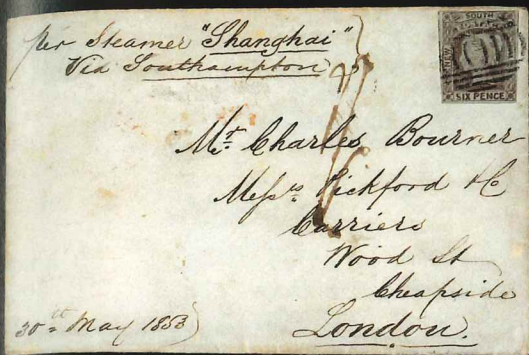 per Steamer "Shanghai"
Via Southampton
SOUTH
SIX PENCE
Mr. Charles Bourner
Messrs Pickford & Co
Carriers
Wood St
Cheapside
London.
30th May 1853